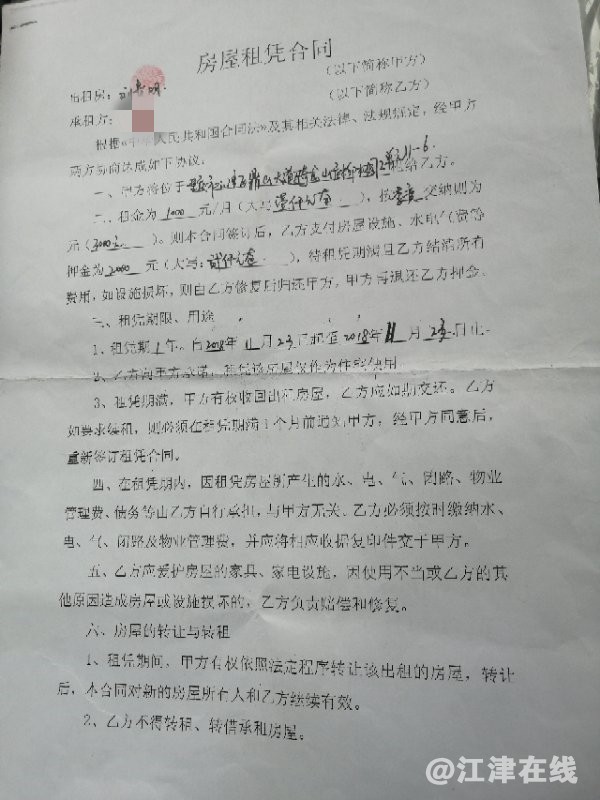 房屋租凭合同
出租房：
（以下简称甲方）
承租方：
（以下简称乙方）
根据《中华人民共和国合同法》及其相关法律、法规规定，经甲方
两方协商达成如下协议：
一、甲方将位于 11-6 租给乙方。
二、租金为 1000 元/月（大写 ），按 交纳则为
元（3000元 ）。则本合同签订后，乙方支付房屋设施、水电气费等
押金为2000 元（大写： ），待租凭期满且乙方结清所有
费用，如设施损坏，则自乙方修复后归还甲方。甲方再退还乙方押金。
三、租凭期限、用途
1、租凭期1年。自2018年11月23日起至2018年11月23日止
2、乙方向甲方承诺，租凭该房屋仅作为住家使用
3、租凭期满，甲方有权收回出租房屋，乙方应如期交还。乙方
如要求续租，则必须在租凭期满1个月前通知甲方，经甲方同意后，
重新签订租凭合同。
四、在租凭期内，因租凭房屋所产生的水、电、气、闭路、物业
管理费、债务等由乙方自行承担，与甲方无关。乙方必须按时缴纳水、
电、气、闭路及物业管理费，并应将相应收据复印件交于甲方。
五、乙方应爱护房屋的家具、家电设施，因使用不当或乙方的其
他原因造成房屋或设施损坏的，乙方负责赔偿和修复。
六、房屋的转让与转租
1、租凭期间，甲方有权依照法定程序转让该出租的房屋，转让
后，本合同对新的房屋所有人和乙方继续有效。
2、乙方不得转租、转借承租房屋。
@江津在线